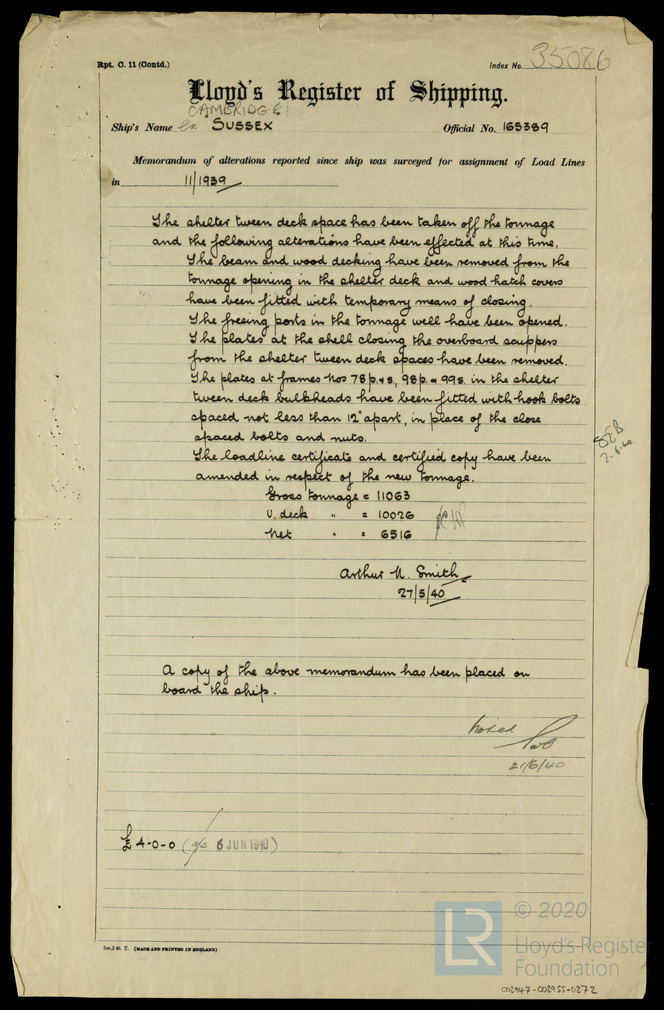 Rpt. C. 11 (Contd.)
Index No. 35086
Lloyd's Register of Shipping.
CAMBRIDGE
Ship's Name SUSSEX Official No. 165389
Memorandum of alterations reported since ship was surveyed for assignment of Load Lines
in 11/1939
The shelter tween deck space has been taken off the tonnage
and the following alterations have been effected at this time.
The beam and wood decking have been removed from the
tonnage opening in the shelter deck and wood hatch covers
have been fitted with temporary means of closing.
The freeing ports in the tonnage well have been opened.
The plates at the shell closing the overboard scuppers
from the shelter tween deck spaces have been removed.
The plates at frames Nos 78 p.&s, 98p. & 99s. in the shelter
tween deck bulkheads have been fitted with hook bolts
spaced not less than 12" apart, in place of the close
spaced bolts and nuts.
The loadline certificate and certified copy have been
amended in respect of the new tonnage.
Gross tonnage = 11063
U. deck " = 10026
Net " = 6516
Arthur N. Smith
27/5/40
A copy of the above memorandum has been placed on
board the ship.
Noted
21/6/40
£4-0-0 ( 6 JUN 1940 )
(MADE AND PRINTED IN ENGLAND)
LR
© 2020
Lloyd's Register
Foundation
002947-002955-0272